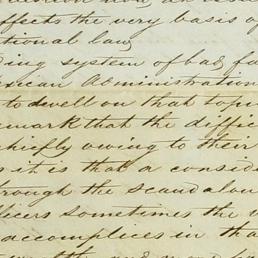 ffects the very basis o
tional law
ing system of bad fa
xican Administration
to dwell on that topi
emark that the diffic
chiefly owing to their
s it is that a consid
rough the scandalou
fficers sometimes the
accomplices in tha